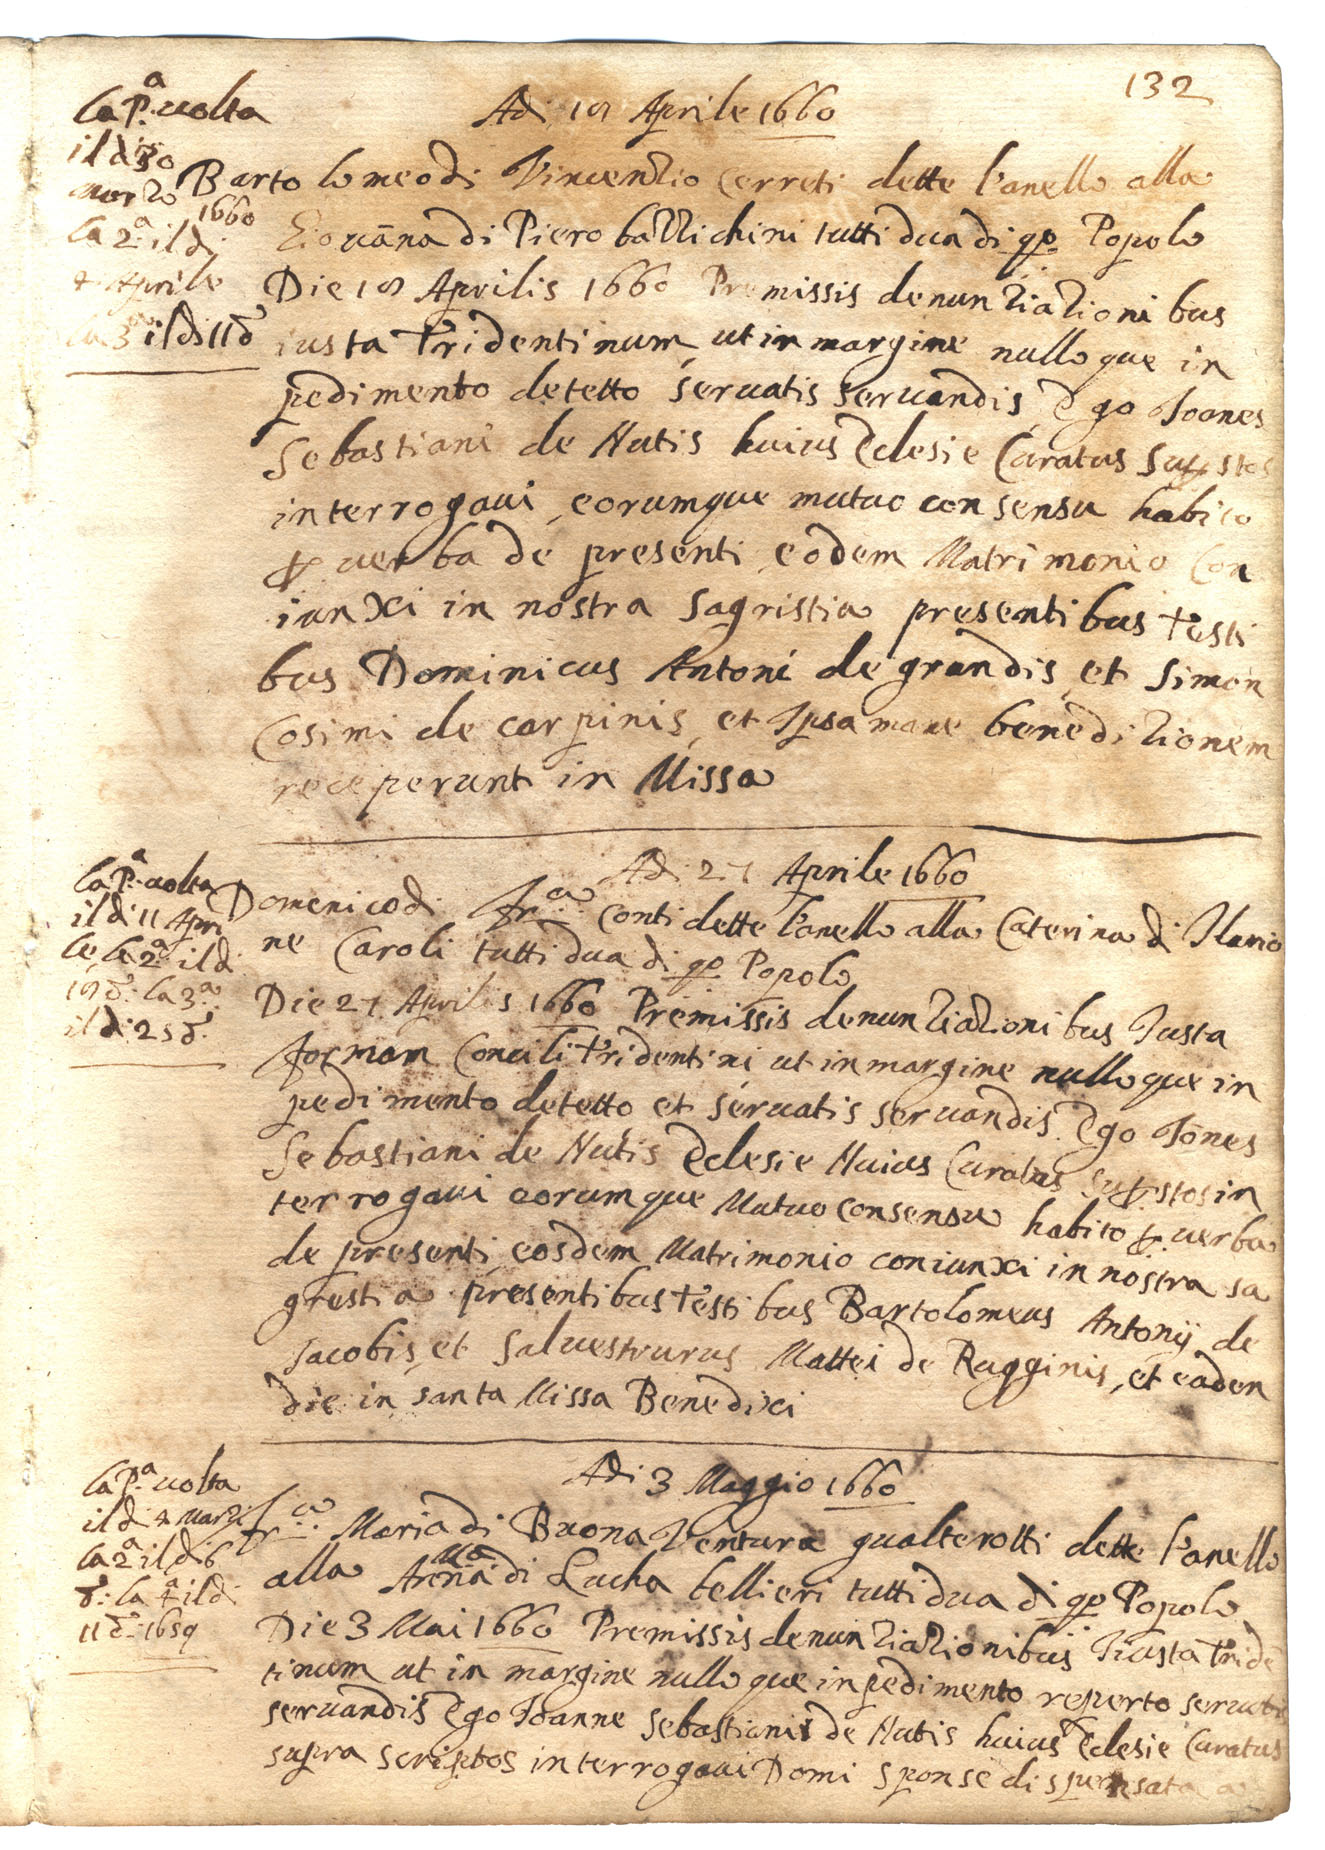 132
Adi 18 Aprile 1660
La P.a uolta
il di 30
Marzo
1660
la 2.a il di
4 Aprile
la 3.a il di 11 d.o
Bartolomeo di Vincenzio Cerreti dette l'anello alla
Giouāna di Piero bazzichini tutti dua di qo Popolo
Die 18 Aprilis 1660 Premissis denunziazionibus
iusta Tridentinum, ut in margine nulloque in
pedimento detetto seruatis seruandis, Ego Joanes
Sebastiani de Nutis huius Eclesie Curatus Sup.stos
interrogaui, eorumque mutuo consensu habito
p uerba de presenti, eodem Matrimonio Con
iunxi in nostra sagristia presentibus testi
bus Dominicus Antoni de grandis, et Simon
Cosimi de carpinis, et Ipsa mane benedizionem
receperunt in Missa
Adi 27 Aprile 1660
La P.a uolta
il di 11 Apri
le, la 2.a il di
18 d.o la 3.a
il di 25 d.o
Domenico di Fr.a Conti dette l'anello alla Caterina di Ilario
ne Caroli tutti dua di qo Popolo
Die 27 Aprilis 1660 Premissis denunziazionibus Iusta
formam Concili tridentini ut in margine nulloque in
pedimento detetto et seruatis seruandis. Ego Jōnes
Sebastiani de Nutis Eclesie Huius Curatus sup.stos in
terrogaui eorumque Mutuo consensu habito p uerba
de presenti, eosdem Matrimonio coniunxi in nostra sa
grestia presentibus testibus Bartolomeus Antonij de
Jacobis, et Saluestrurus Mattei de Rugginis, et eaden
die in santa Missa Benedixi
Adi 3 Maggio 1660
La P.a uolta
il di 4 Marzi
la 2.a il di 6
d.o la 4.a il di
11 d.o 1659
Fr.co Maria di Buona Ventura gualterotti dette l'anello
alla di Lucha tellieri tutti dua di qo Popolo
Die 3 Mai 1660 Premissis denunziazionibus Iiusta tridē
tinum ut in margine nulloque inpedimento reperto seruatis
seruandis Ego Joanne Sebastianis de Nutis huius Eclesie Curatus
supra scriptos interrogaui Domi sponse dispensata a